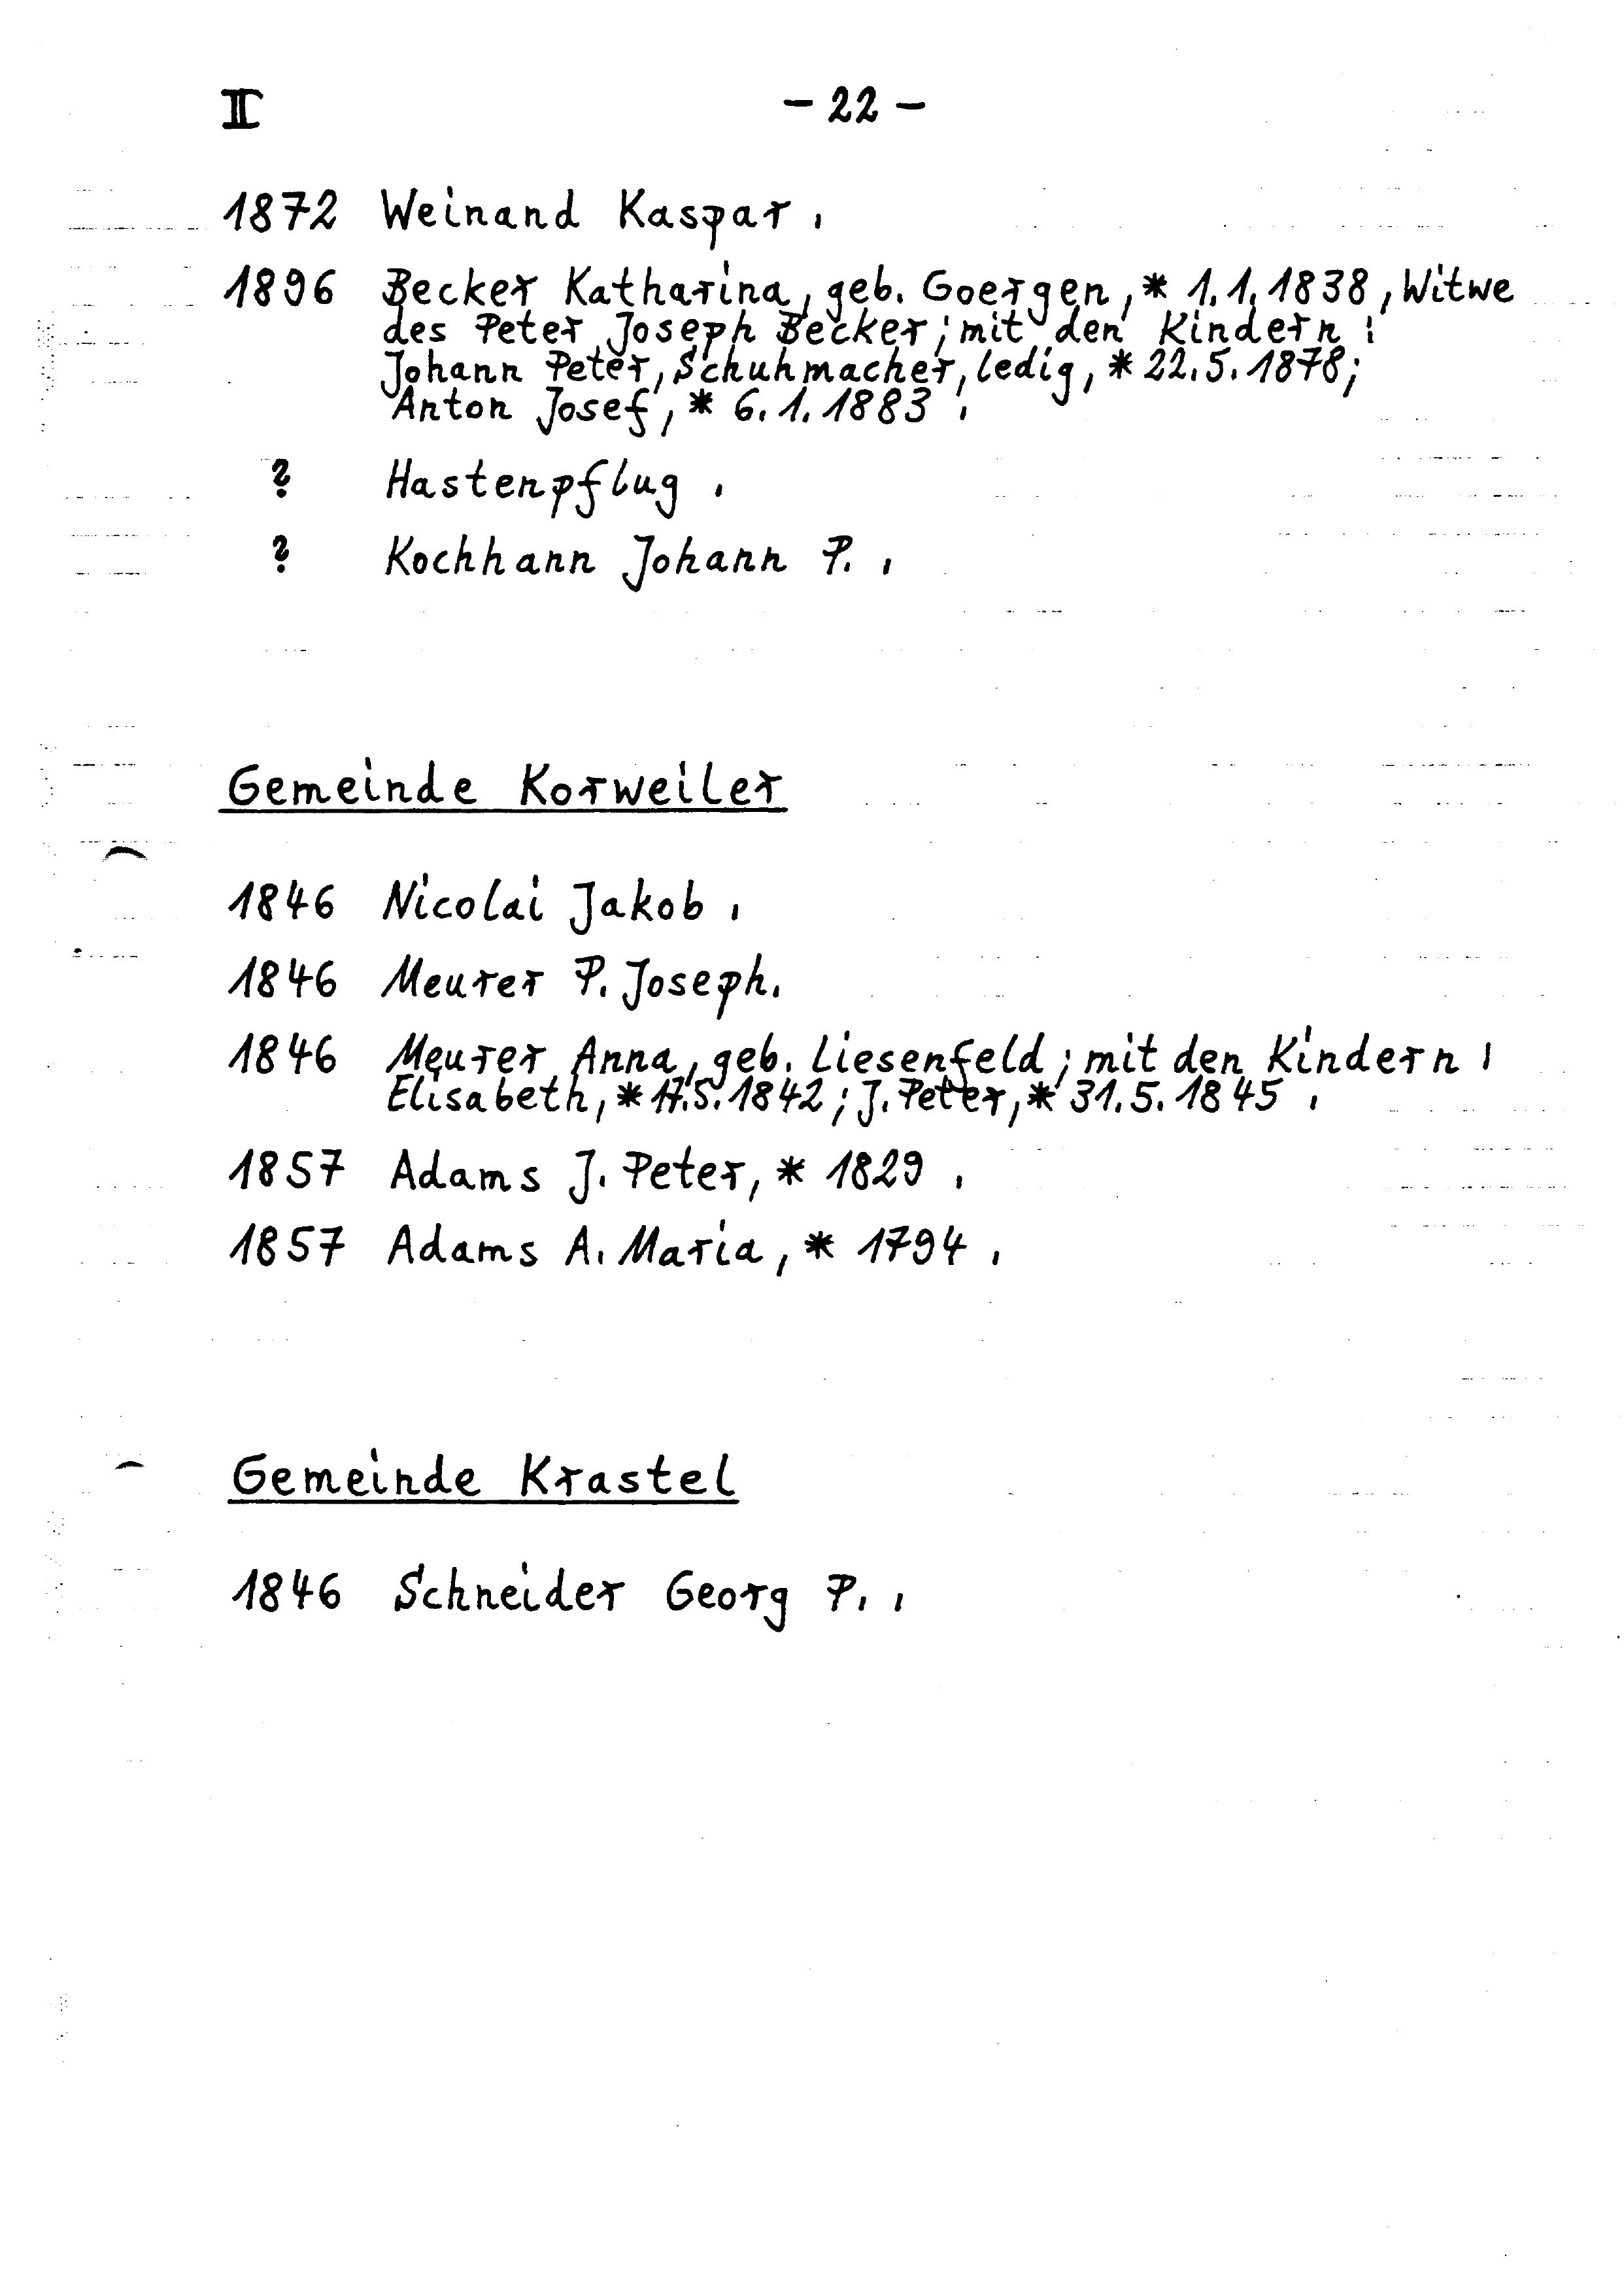 II - 22 -
1872 Weinand Kaspar.
1896 Becker Katharina, geb. Goergen, * 1.1.1838, Witwe
des Peter Joseph Becker; mit den Kindern:
Johann Peter, Schuhmacher, ledig, * 22.5.1878;
Anton Josef, * 6.1.1883.
? Hastenpflug.
? Kochhann Johann P..
Gemeinde Korweiler
1846 Nicolai Jakob.
1846 Meurer P. Joseph.
1846 Meurer Anna, geb. Liesenfeld; mit den Kindern:
Elisabeth, * 17.5.1842; J. Peter, * 31.5.1845.
1857 Adams J. Peter, * 1829.
1857 Adams A. Maria, * 1794.
Gemeinde Krastel
1846 Schneider Georg P..